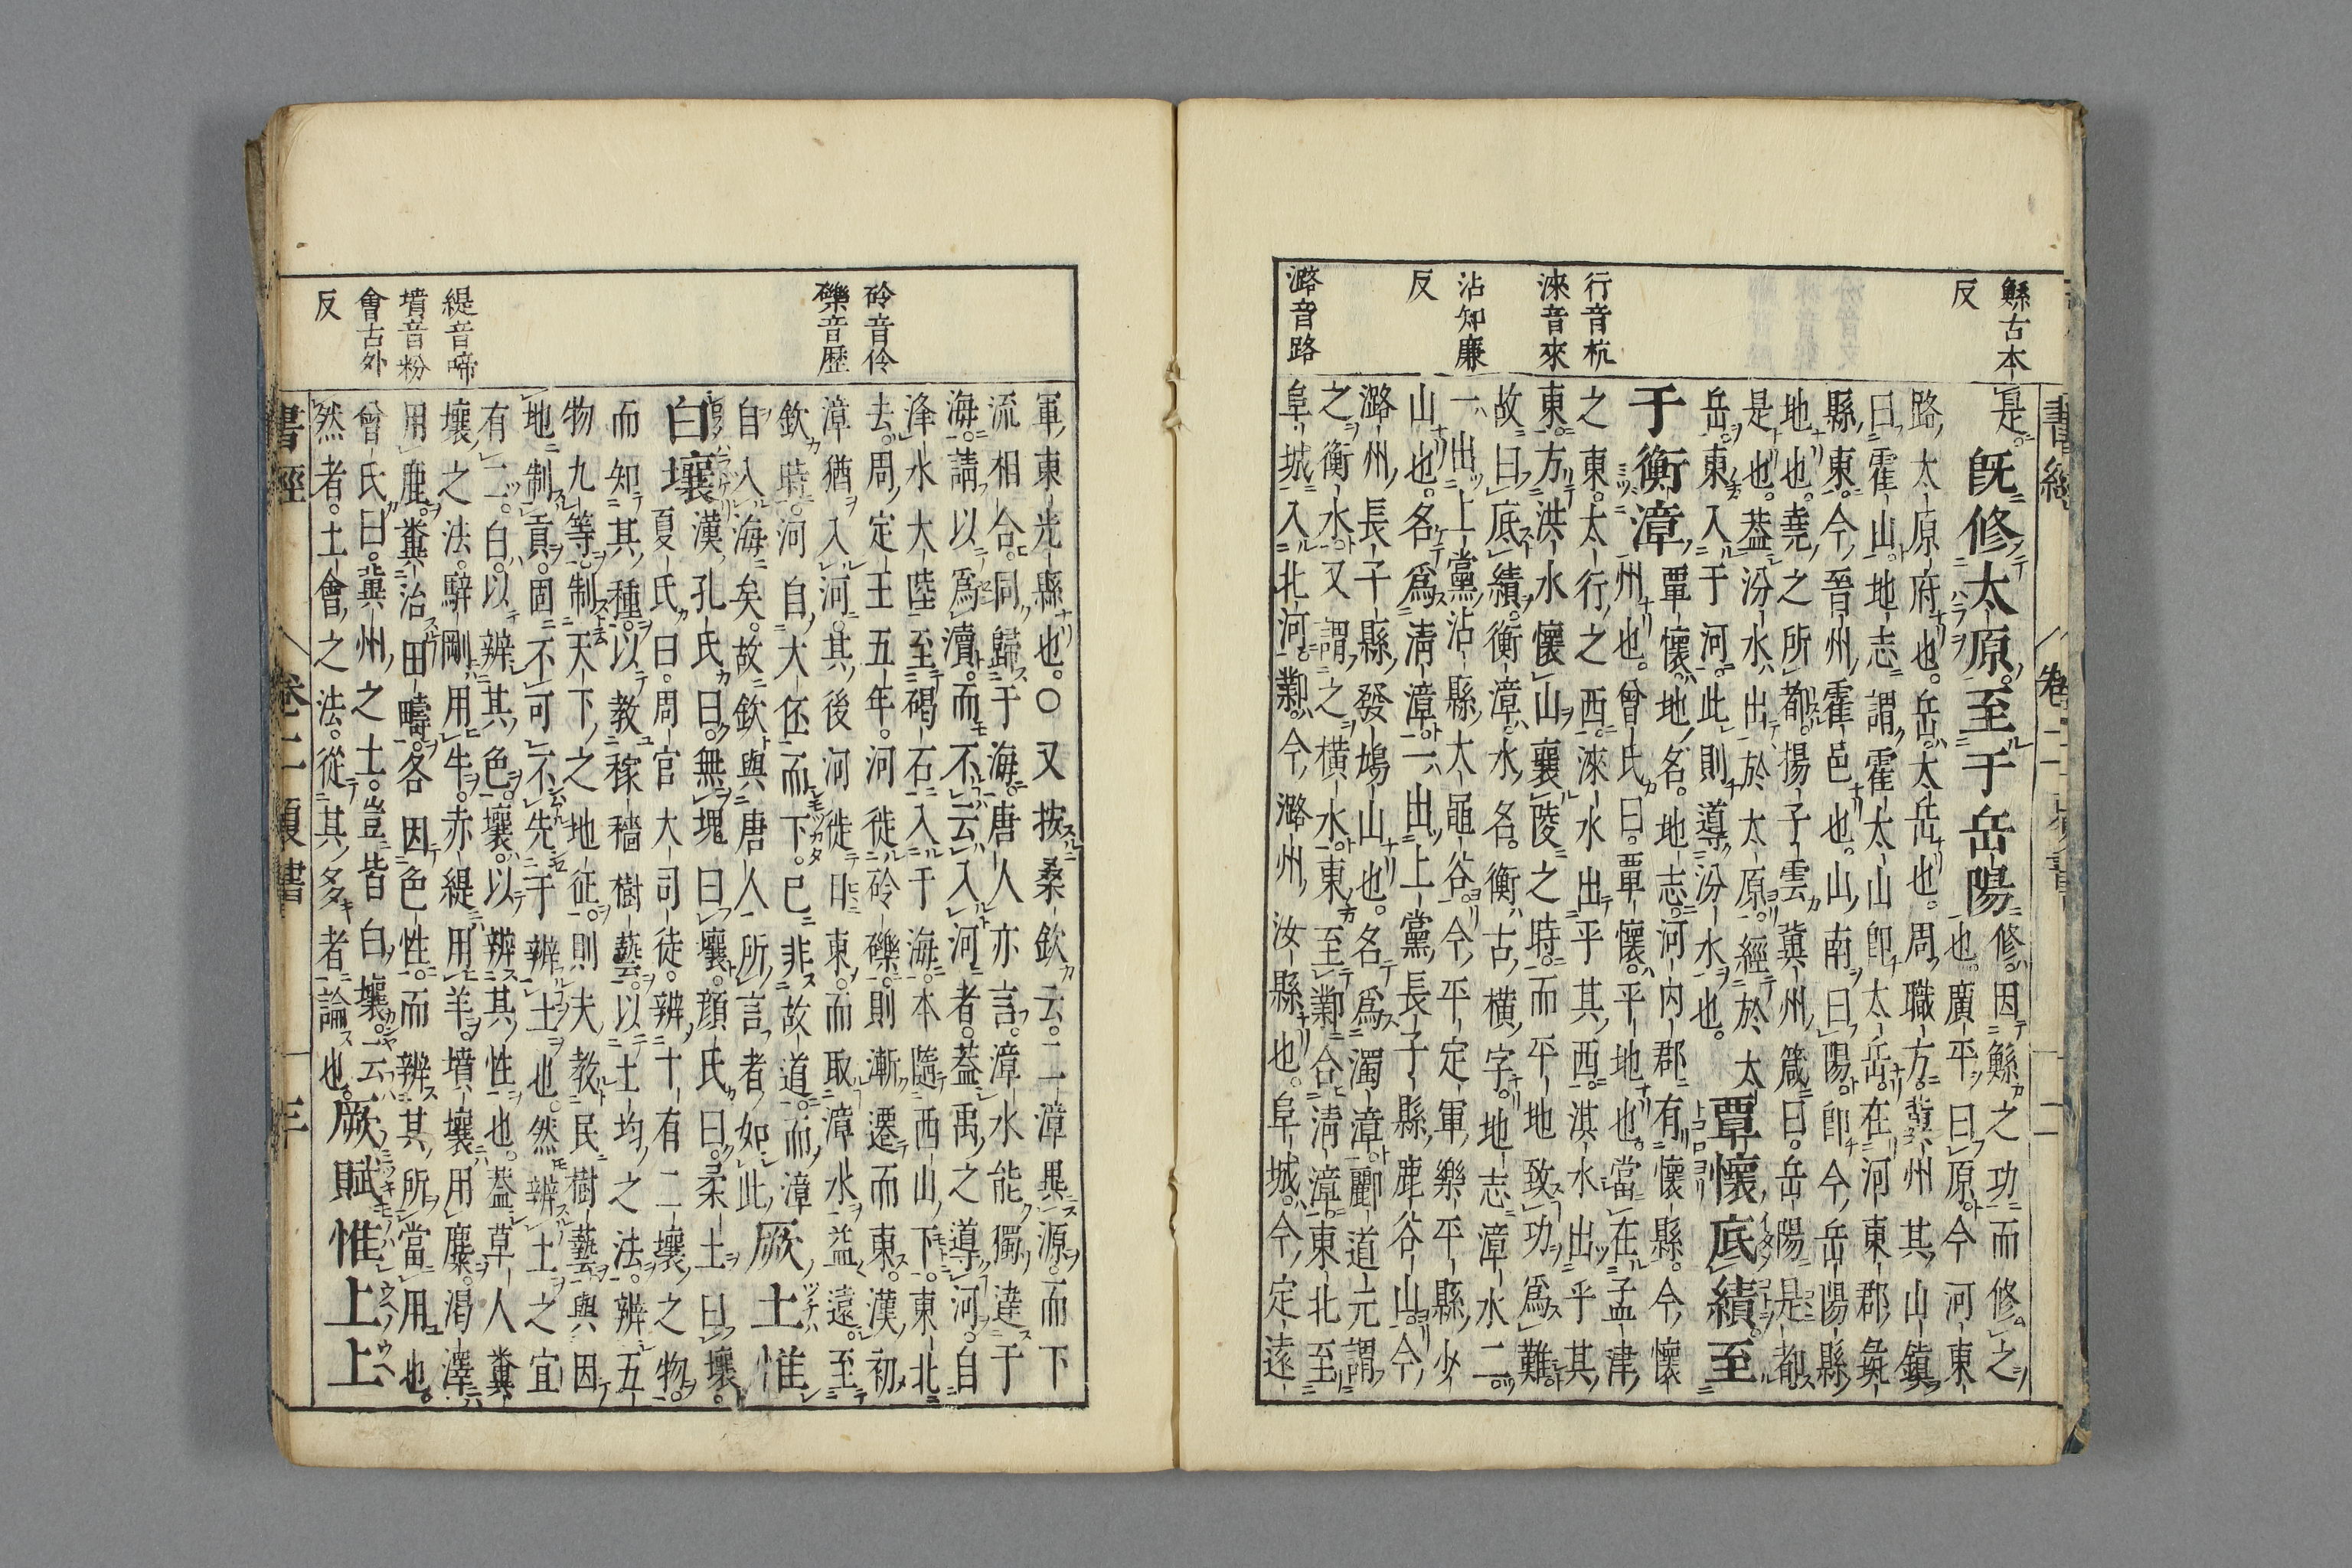 鯀古本
反
行音杭
淶音來
沾知廉
反
潞音路
是。既修太原。至于岳陽修。因鯀之功而修之
也。廣平曰原。今河東
路太原府也。岳太岳也。周職方。冀州其山鎮
曰霍山。地志謂霍太山卽太岳。在河東郡彘
縣東。今晉州霍邑也。山南曰陽。卽今岳陽縣
地也。堯之所都。揚子雲冀州箴曰。岳陽是都
是也。葢汾水出於太原。經於太
岳東。入于河。此則導汾水也。覃懷底績至
于衡漳覃懷地名。地志。河內郡有懷縣。今懷
州也。曾氏曰。覃懷平地也。當在孟津
之東。太行之西。淶水出乎其西。淇水出乎其
東。方洪水懷山襄陵之時。而平地致功爲難
故曰底績。衡漳水名。衡古橫字。地志漳水二
一出上黨沾縣大黽谷。今平定軍樂平縣少
山也。名爲淸漳。一出上黨長子縣鹿谷山。今
潞州長子縣發鳩山也。名爲濁漳。酈道元謂
之衡水。又謂之橫水。東至鄴合淸漳。東北至
阜城入北河。鄴今潞州汝縣也。阜城今定遠
書經
卷二
砱音伶
礫音歷
緹音啼
墳音粉
會古外
反
軍東光縣也。○又按桑欽云。二漳異源而下
流相合。同歸于海。唐人亦言。漳水能獨達于
海。請以爲瀆。而不云入河者。葢禹之導河。自
洚水大陸。至碣石入于海。本隨西山下東北
去。周定王五年。河徙砱礫。則漸遷而東。漢初
漳猶入河。其後河徙日東。而取漳水益遠。至
欽時。河自大伾而下。已非故道。而漳
自入海矣。故欽與唐人所言者如此厥土惟
白壤漢孔氏曰。無塊曰壤。顏氏曰。柔土曰壤。
夏氏曰。周官大司徒。辨十有二壤之物。
而知其種。以敎稼穡樹藝。以土均之法辨五
物九等。制天下之地征。則夫敎民樹藝與因
地制貢。固不可不先于辨土也。然辨土之宜
有二。白以辨其色。壤以辨其性也。葢草人糞
壤之法。騂剛用牛。赤緹用羊。墳壤用麋。渴澤
用鹿。糞治田疇。各因色性。而辨其所當用也。
曾氏曰。冀州之土。豈皆白壤。云
然者。土會之法。從其多者論也。厥賦惟上上
書經
卷二
夏書